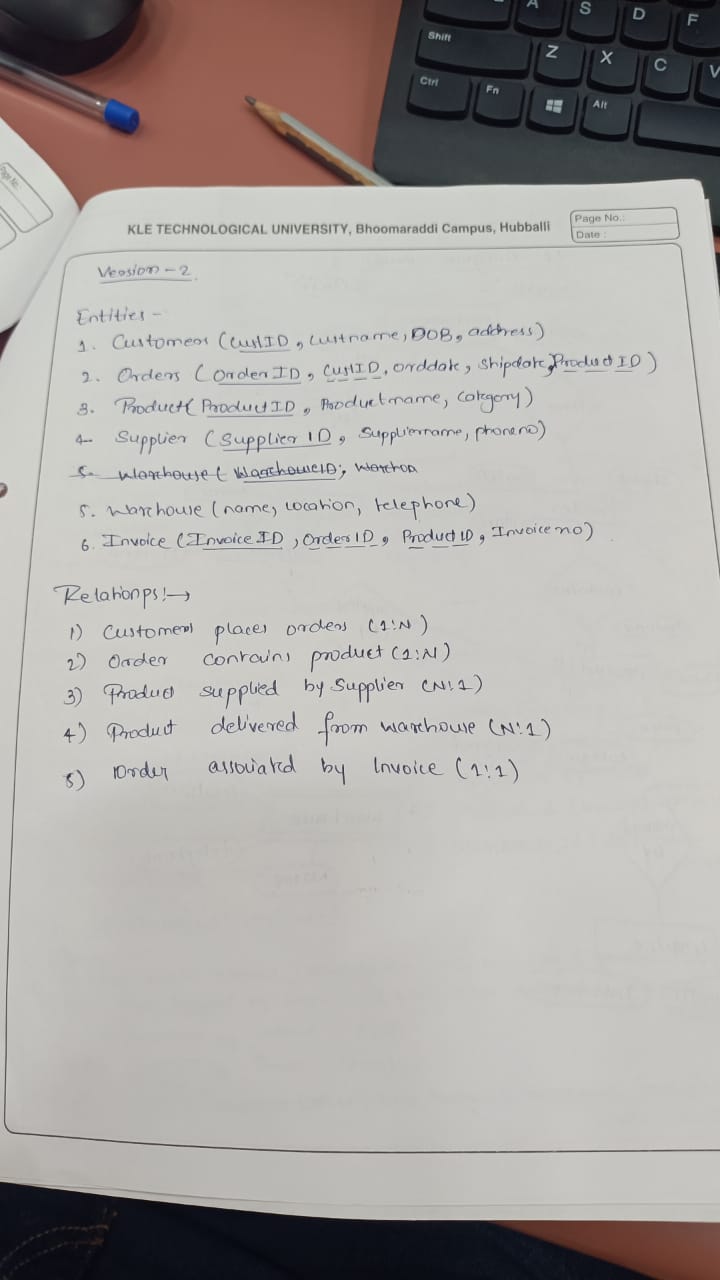 A S D F
Shift Z X C V
Ctrl Fn Alt
Page No.
KLE TECHNOLOGICAL UNIVERSITY, Bhoomaraddi Campus, Hubballi
Page No.:
Date :
Version - 2.
Entities -
1. Customers (CustID, Custname, DOB, address)
2. Orders (Order ID, CustID, orddate, shipdate, Product ID)
3. Product( Product ID, Productname, Category)
4. Supplier (Supplier ID, Suppliername, phoneno)
5. Warehouse ( WarehouseID,
5. Warehouse (name, location, telephone)
6. Invoice (Invoice ID, Order ID, Product ID, Invoice no)
Relationps:→
1) Customers places orders (1:N)
2) Order contains product (1:N)
3) Product supplied by Supplier (N:1)
4) Product delivered from warehouse (N:1)
5) Order associated by Invoice (1:1)